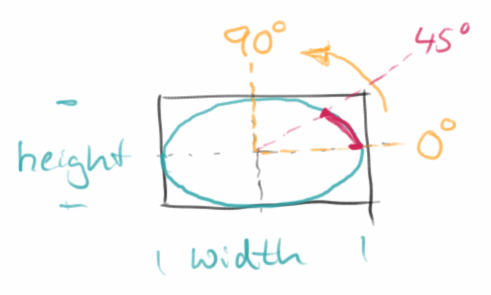 90°
45°
0°
height
width